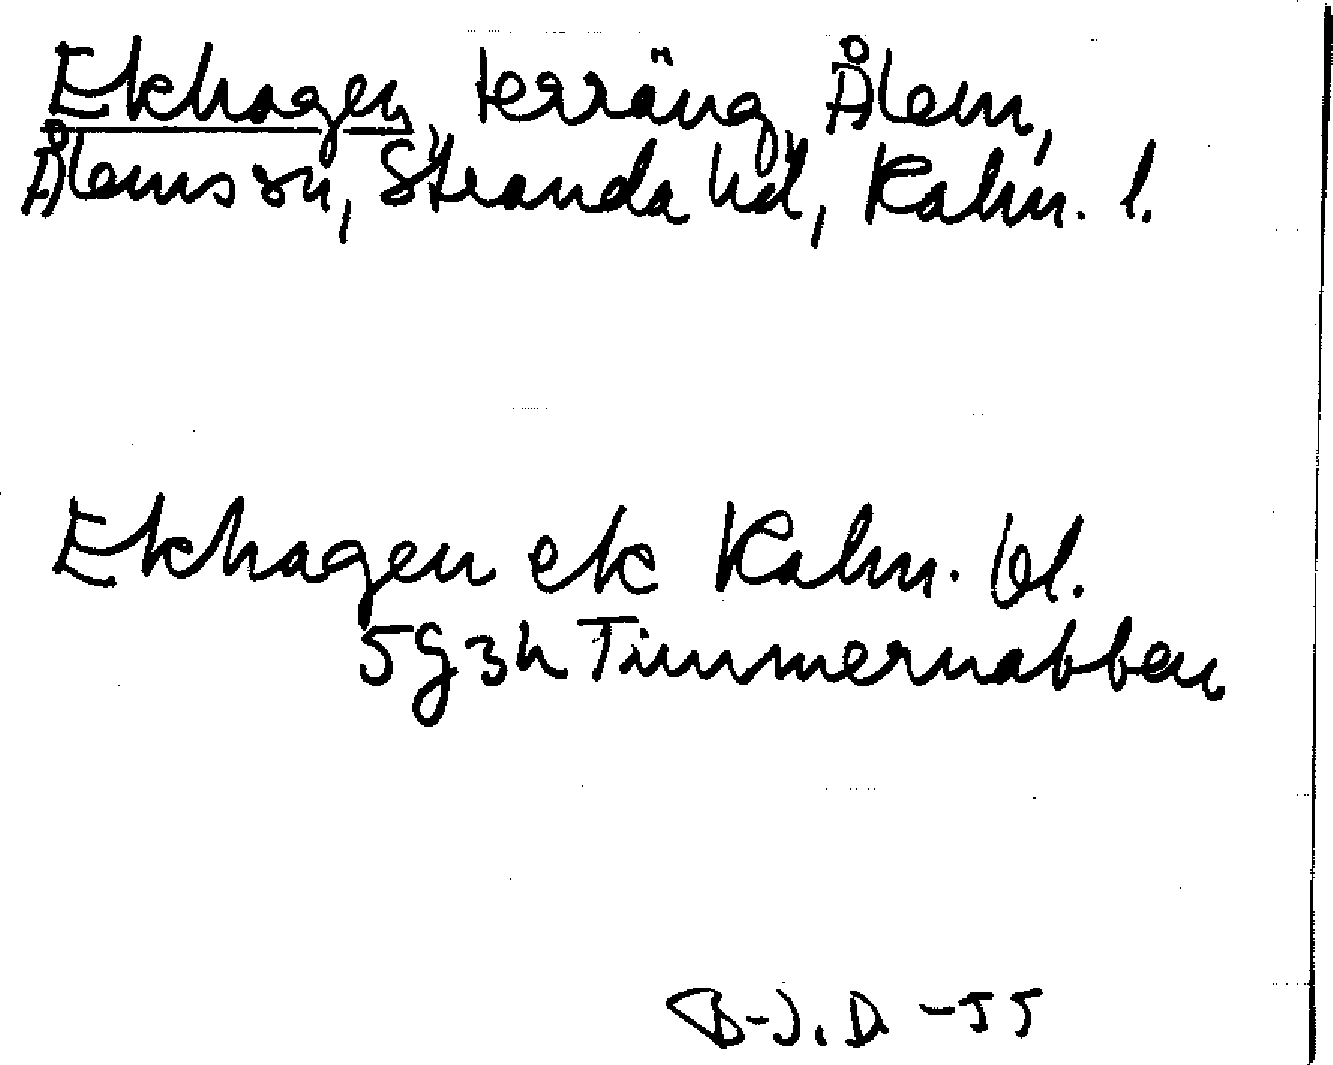 Ekhagen, terräng, Ålem,
Ålems sn, Stranda hd, Kalm. l.
Ekhagen ek Kalm. bl.
5g3h Timmernabben
B-J. D. -55